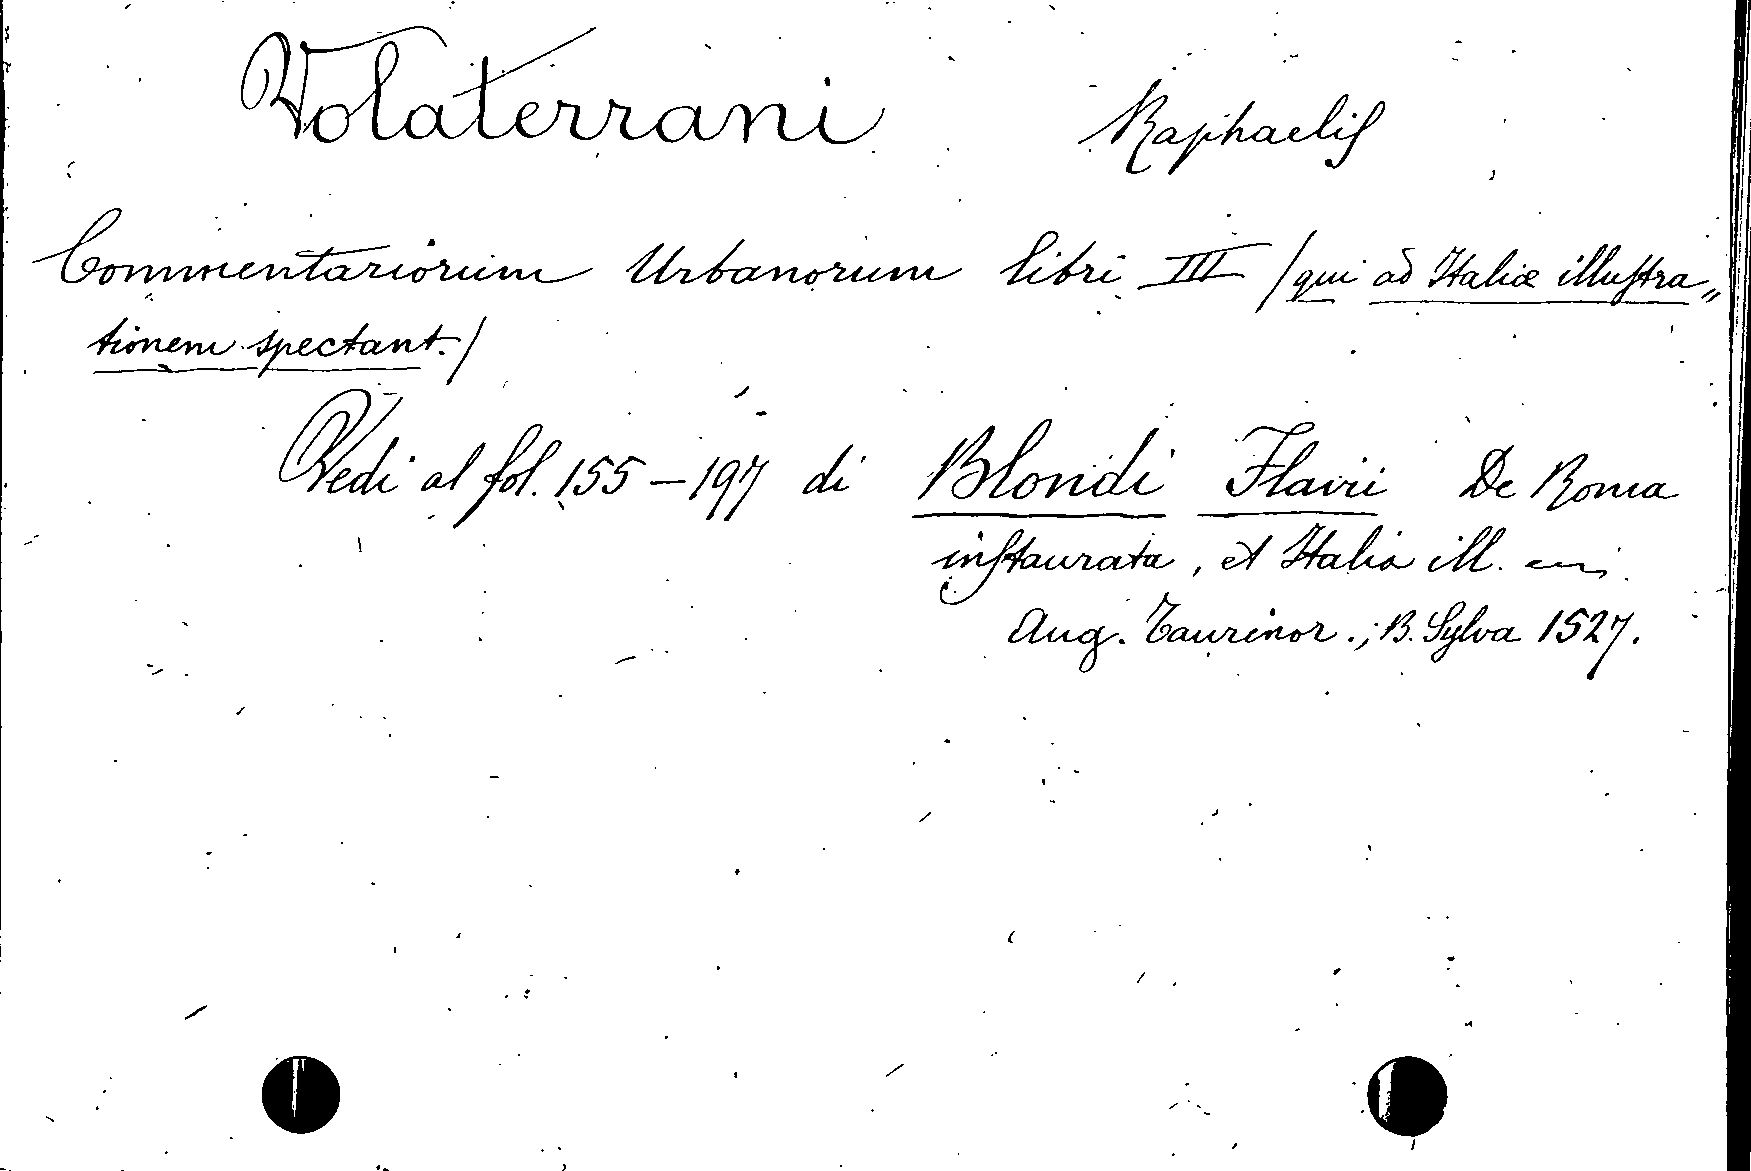 Volaterrani Raphaelis
Commentariorum Urbanorum libri III /qui ad Italiæ illustra„
tionem spectant./
Vedi al fol. 155–197 di Blondi Flavii De Roma
instaurata, et Italia ill.
Aug. Taurinor.; B. Sylva 1527.